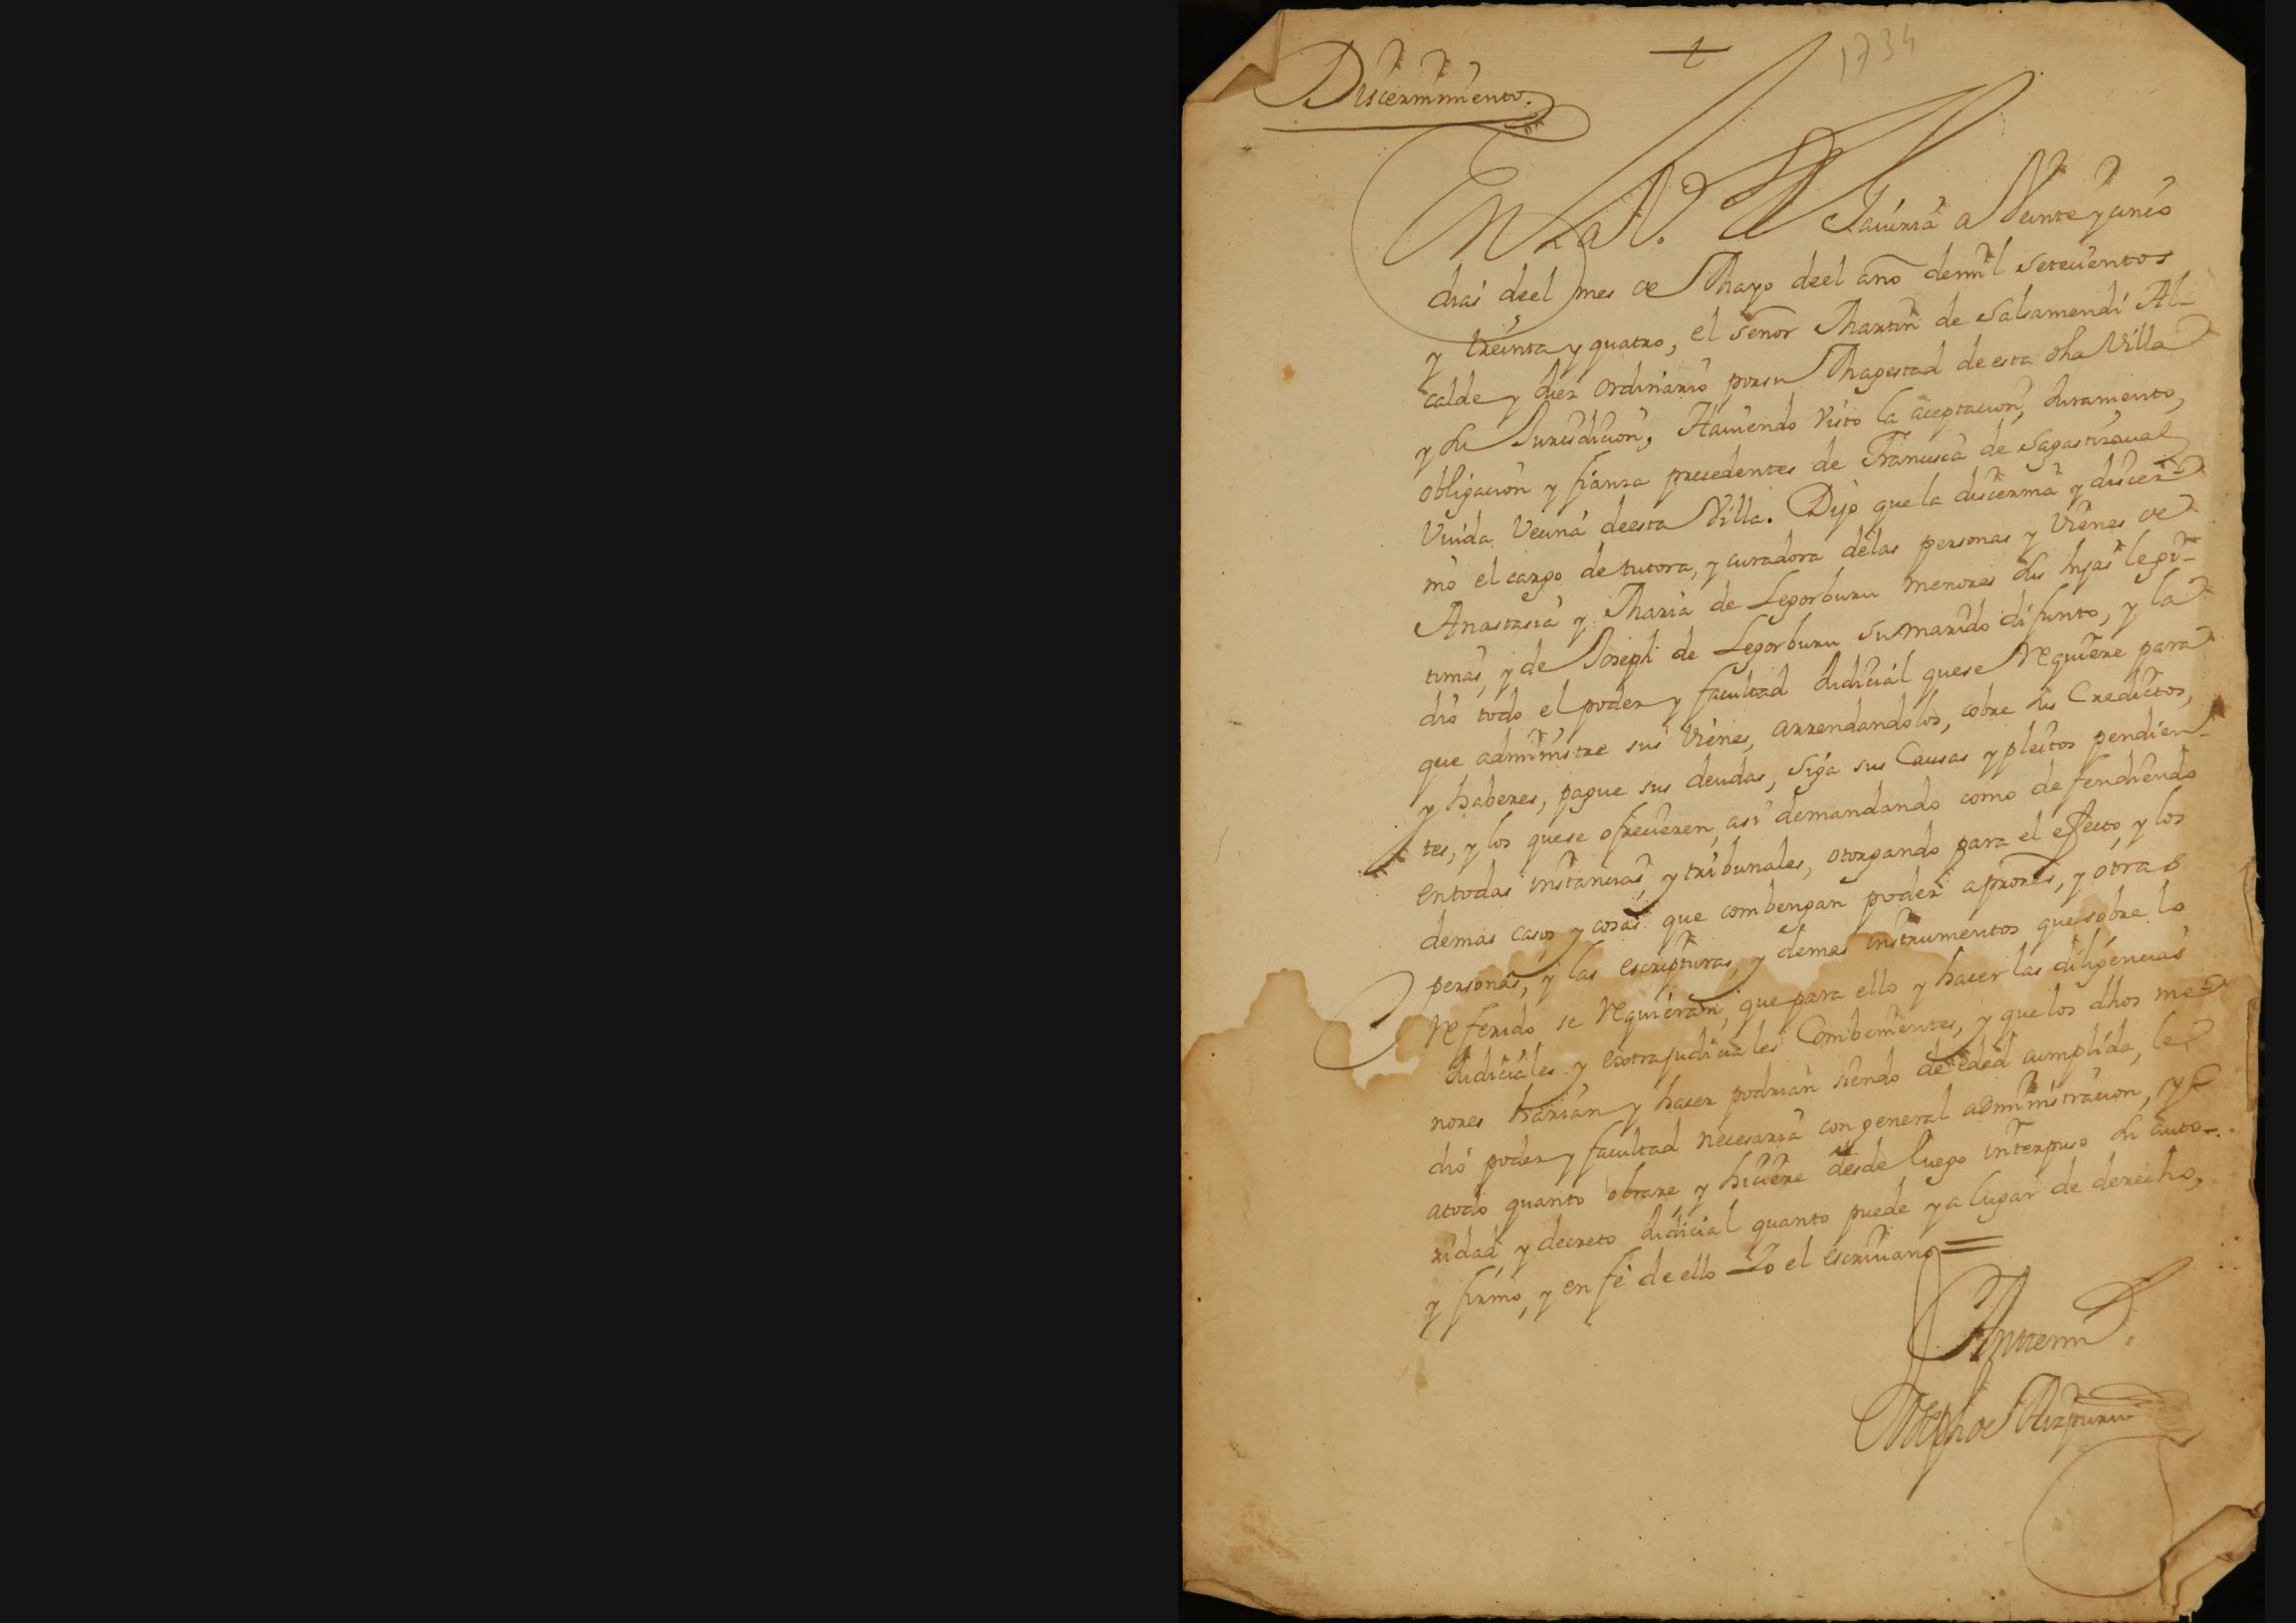 1734
Discernimiento.
En la N. Villa a Veinte y cinco
dias deel mes de Mayo deel año de mil setecientos
y treinta y quatro, el señor Martin de Salsamendi Al-
calde y Juez ordinario por su Magestad de esta dha Villa
y su Jurisdicion, Haviendo visto la aceptacion, Juramento,
obligacion y fianza precedentes de Francisca de Sagastizaval
Viuda Vecina de esta Villa. Dijo que la discernia y discer-
nio el cargo de tutora, y curadora de las personas y vienes de
Anastasia y Maria de Legorburu menores sus hijas legi-
timas, y de Joseph de Legorburu su marido difunto, y la
dio todo el poder y facultad Judicial que se requiere para
que administre sus vienes, arrendandolos, cobre sus Credictos,
y haberes, pague sus deudas, siga sus Causas y pleitos pendien-
tes, y los que se ofrecieren, asi demandando como defendiendo
en todas instancias, y tribunales, otorgando para el effecto, y los
demas casos y cosas que combengan poder a prores, y otras
personas, y las escripturas, y demas instrumentos que sobre lo
referido se requieran, que para ello y hacer las diligencias
Judiciales y extrajudiciales Combenientes, y que los dhos me-
nores harian y hacer podrian siendo de edad cumplida, le
dió poder y facultad necesaria con general administracion, y
a todo quanto obrare, y hiciere desde luego interpuso su auto-
ridad, y decreto Judicial quanto puede y a lugar de derecho,
y firmo, y en fe de ello Yo el escrivano =
Ante mi
Joseph de Aizpuru